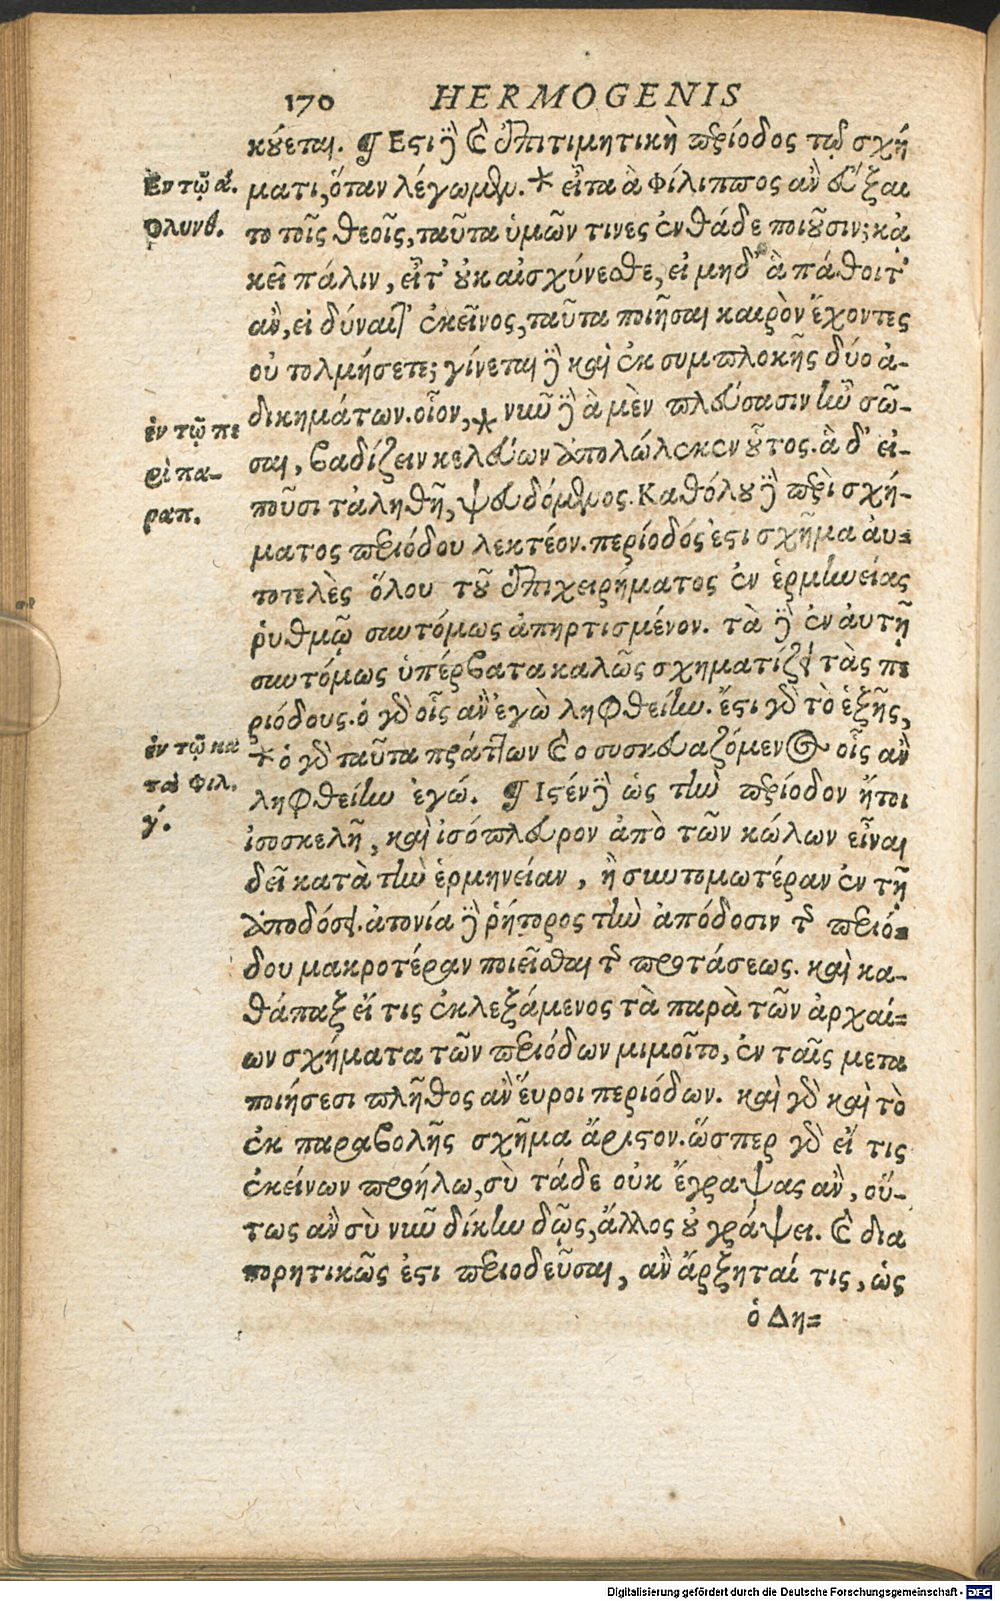 170 HERMOGENIS
κύεται. ¶ Εστι δὲ καὶ ἐπιτιμητικὴ περίοδος τῷ σχή
Ἐν τῷ α΄.
ὀλυνθ.
ματι, ὅταν λέγωμεν. * εἶτα ἃ Φίλιππος ἂν εὔξαι
το τοῖς θεοῖς, ταῦτα ὑμῶν τινες ἐνθάδε ποιοῦσιν; κἀ
κεῖ πάλιν, εἶτ' οὐκ αἰσχύνεσθε, εἰ μηδ' ἃ πάθοιτ'
ἂν, εἰ δύναιτ' ἐκεῖνος, ταῦτα ποιῆσαι καιρὸν ἔχοντες
οὐ τολμήσετε; γίνεται δὲ καὶ ἐκ συμπλοκῆς δύο ἀ-
ἐν τῷ πε
ρὶ πα-
ραπ.
δικημάτων. οἷον, * νῦν δὲ ἃ μὲν πλεύσασιν ἦν σῶ-
σαι, βαδίζειν κελεύων ἀπολώλεκεν οὗτος. ἃ δ' εἰ-
ποῦσι τἀληθῆ, ψευδόμενος. Καθόλου δὲ περὶ σχή-
ματος περιόδου λεκτέον. περίοδός ἐστι σχῆμα αὐ-
τοτελὲς ὅλου τοῦ ἐπιχειρήματος ἐν ἑρμηνείας
ῥυθμῷ συντόμως ἀπηρτισμένον. τὰ δὲ ἐν αὐτῇ
συντόμως ὑπέρβατα καλῶς σχηματίζει τὰς πε
ριόδους. ὁ γὰρ οἷς ἂν ἐγὼ ληφθείην. ἔστι γὰρ τὸ ἑξῆς,
ἐν τῷ κα
τὰ Φιλ.
γ΄.
* ὁ γὰρ ταῦτα πράττων καὶ συσκευαζόμενος οἷς ἂν
ληφθείην ἐγώ. ¶ Ιστέν δὲ ὡς τὴν περίοδον ἤτοι
ἰσοσκελῆ, καὶ ἰσόπλευρον ἀπὸ τῶν κώλων εἶναι
δεῖ κατὰ τὴν ἑρμηνείαν, ἢ συντομωτέραν ἐν τῇ
ἀποδόσει. ἀτονία δὲ ῥήτορος τὴν ἀπόδοσιν τῆς περιό-
δου μακροτέραν ποιεῖσθαι τῆς προτάσεως. καὶ κα-
θάπαξ εἴ τις ἐκλεξάμενος τὰ παρὰ τῶν ἀρχαί-
ων σχήματα τῶν περιόδων μιμοῖτο, ἐν ταῖς μετα
ποιήσεσι πλῆθος ἂν εὕροι περιόδων. καὶ γὰρ καὶ τὸ
ἐκ παραβολῆς σχῆμα ἄριστον. ὥσπερ γὰρ εἴ τις
ἐκείνων προήλω, σὺ τάδε οὐκ ἔγραψας ἂν, οὕ-
τως ἂν σὺ νῦν δίκην δῷς, ἄλλος οὐ γράψει. καὶ δια
πορητικῶς ἔστι περιοδεῦσαι, ἂν ἄρξηταί τις, ὡς
ὁ Δη-
Digitalisierung gefördert durch die Deutsche Forschungsgemeinschaft - DFG